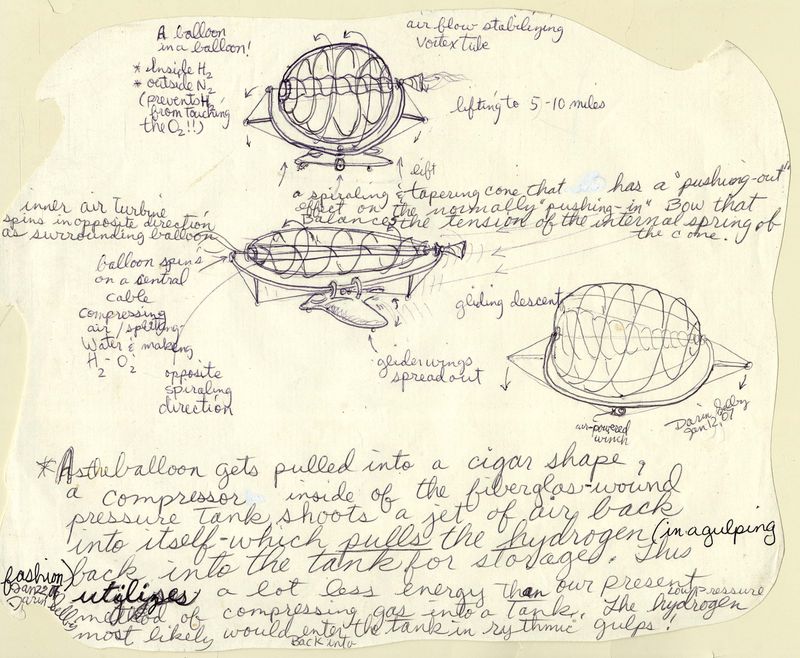 A balloon
in a balloon!
* Inside H2
* outside N2
(prevents H2
from touching
the O2!!)
air flow stabilizing
Vortex tube
lifting to 5-10 miles
lift
a spiraling & tapering cone that has a "pushing-out"
effect on the normally "pushing-in" Bow that
Balances the tension of the internal spring of
the cone.
inner air turbine
spins in opposite direction
as surrounding balloon
balloon spins
on a central
cable
compressing
air / splitting
Water & making
H2 - O2
opposite
spiraling
direction
glider wings
spread out
gliding descent
air-powered
winch
Darin Selby
Jan 12, '07
* As the balloon gets pulled into a cigar shape,
a compressor inside of the fiberglas-wound
pressure tank shoots a jet of air back
into itself-which pulls the hydrogen (in a gulping
fashion) back into the tank for storage. This
utilizes a lot less energy than our present
low pressure
method of compressing gas into a tank. The hydrogen
most likely would enter the tank in rythmic "gulps"!
Back into
Darin Selby